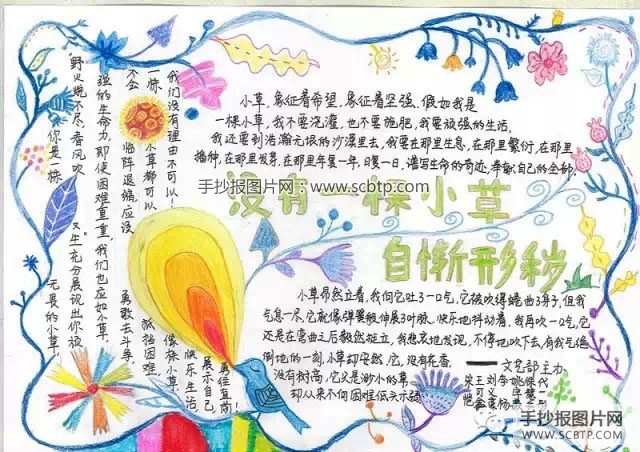 小草,象征着希望,象征着坚强,假如我是
一棵小草,我不要浇灌,也不要施肥,我要顽强的生活,
我还要到浩瀚无垠的沙漠里去,我要在那里生息,在那里繁衍,在那里
播种,在那里发芽,在那里年复一年,日复一日,谱写生命的奇迹,奉献自己的全部。
手抄报图片网:www.scbtp.com
没有一棵小草
自惭形秽
小草昂然立着,我向它吐了一口气,它被吹得蜷曲了身子,但我
气息一尽,它就像弹簧般伸展了叶脉,快乐地抖动着。我再吹一口气,它
还是在弯曲之后毅然挺立,我悲哀地发现,不停地吹下去,有气气绝
倒地的一刻,小草却安然,它,没有花香,
没有树高,它只是渺小的草
却从来不向困难低头示弱
——文艺部主力
你是一株
无畏的小草,
"野火烧不尽,春风吹
又生"充分展现出你顽
强的生命力,即使困难重重,我们也应如小草,
不会
临阵退缩,应没
一株
小草都可以
我们没有理由不可以!
勇敢去斗争,
抵挡困难,
像株小草,
快乐生活,
展示自己,
勇往直前!
手抄报图片网
WWW.SCBTP.COM